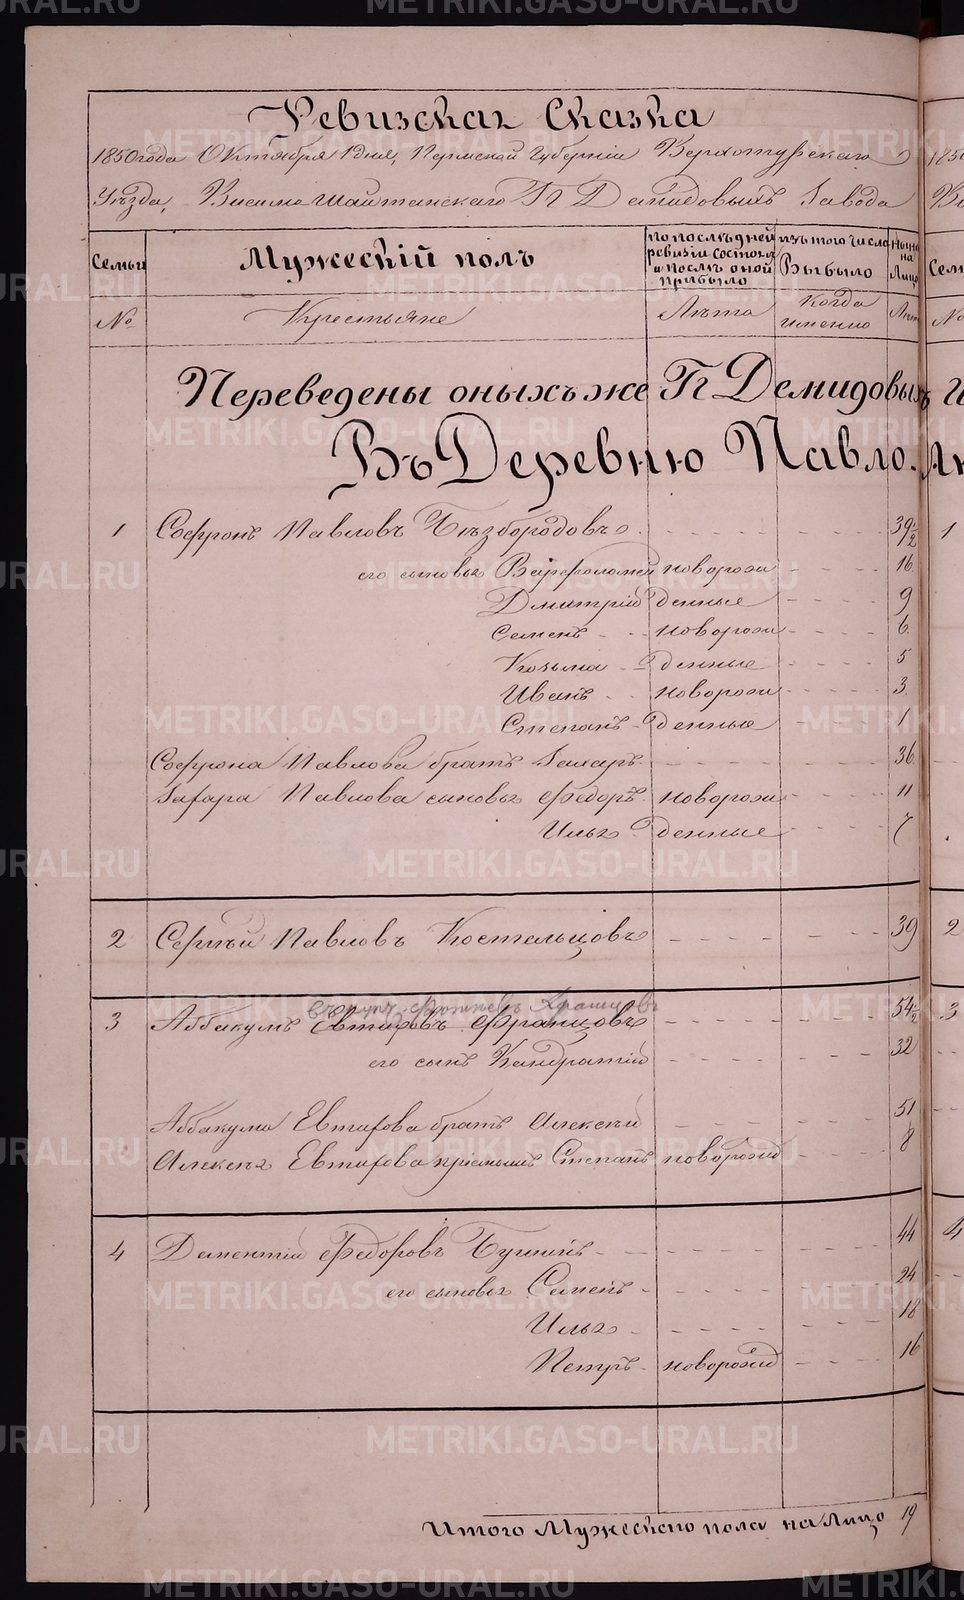 Ревизская Сказка
1850 года Октября 1 дня, Пермской Губернiи Верхотурскаго
Уѣзда, Висимо шайтанскаго ГГ Демидовыхъ Завода
Семьи
Мужескiй полъ
по послѣдней ревизiи состояло и послѣ оной прибыло
изъ того числа Выбыло
Нынѣ на Лицо
№
Крестьяне
Лѣта
Когда именно
Лѣта
Переведены оныхъ же ГГ Демидовыхъ
Въ Деревню Павло.
1 Софронъ Павловъ Бѣзбородовъ 39½
его сыновья Варфоломей новорож 16
Дмитрiй денные 9
Семенъ новорож 6
Козьма денные 5
Иванъ новорож 3
Степанъ денные 1
Софрона Павлова братъ Захаръ 36
Захара Павлова сыновья Федоръ новорож 11
Илья денные 7
2 Сергѣй Павловъ Костельцовъ 39
3 Аббакумъ Евтифовъ Францовъ 54½
его сынъ Кандратiй 32
Аббакума Евтифова братъ Алексѣй 51
Алексея Евтифова прiемышъ Степанъ новорожд 8
4 Дементiй Федоровъ 44
его сыновья Семенъ 24
Илья 18
Петръ новорожд 16
Итого Мужескаго пола на Лицо 19
METRIKI.GASO-URAL.RU